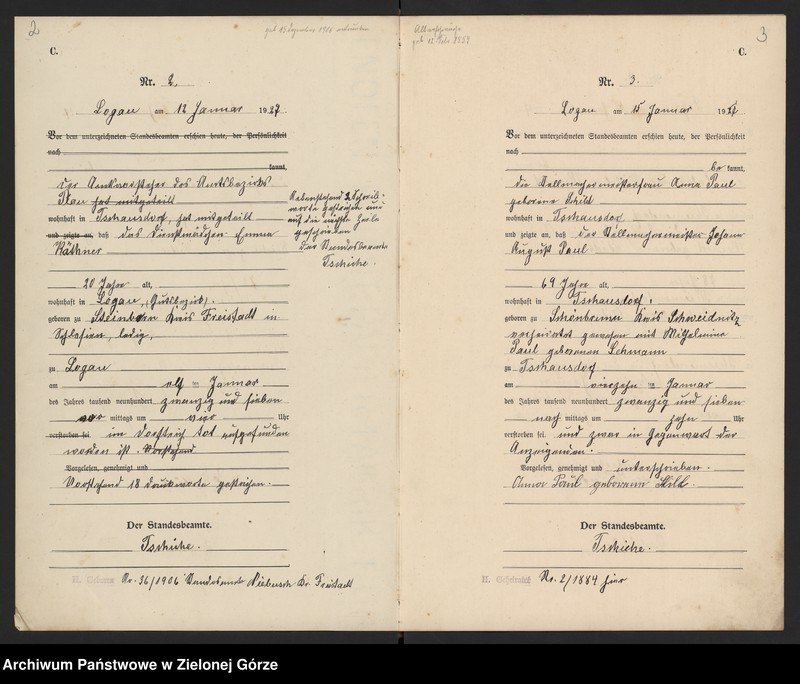 2
C.
Nr. 2.
Logau am 12 Januar 1927
Vor dem unterzeichneten Standesbeamten erschien heute, der Persönlichkeit
nach
kannt,
der Amtsvorsteher des Amtsbezirks
Plau hat mitgeteilt
wohnhaft in Tschausdorf, hat mitgeteilt
und zeigte an, daß das Dienstmädchen Emma
Käthner
20 Jahre alt,
wohnhaft in Logau, (Gutsbezirk).
geboren zu Steinborn Kreis Freistadt in
Schlesien, ledig,
zu Logau
am elf ten Januar
des Jahres tausend neunhundert zwanzig und sieben
vor mittags um vier Uhr
verstorben sei. im Dorfteich tot aufgefunden
worden ist. Vorstehend
Vorgelesen, genehmigt und
Vorstehend 18 Druckworte gestrichen.
Der Standesbeamte.
Tschiche.
Nr. 36/1906 Standesamt Niebusch Kr. Freistadt
Nebenstehend 3 Schreib-
worte gestrichen und
auf die nächste Zeile
geschrieben
Der Standesbeamte
Tschiche.
3
C.
Nr. 3.
Logau am 15 Januar 1927
Vor dem unterzeichneten Standesbeamten erschien heute, der Persönlichkeit
nach
be kannt,
die Stellmachermeisterfrau Anna Paul
geborene Schild
wohnhaft in Tschausdorf
und zeigte an, daß der Stellmachermeister Johann
August Paul
69 Jahre alt,
wohnhaft in Tschausdorf,
geboren zu Schönbrunn Kreis Schweidnitz
verheiratet gewesen mit Wilhelmine
Paul geborenen Lehmann
zu Tschausdorf
am vierzehn ten Januar
des Jahres tausend neunhundert zwanzig und sieben
nach mittags um zehn Uhr
verstorben sei. und zwar in Gegenwart der
Anzeigenden.
Vorgelesen, genehmigt und unterschrieben.
Anna Paul geborene
Der Standesbeamte.
Tschiche.
Nr. 2/1884 hier
Archiwum Państwowe w Zielonej Górze